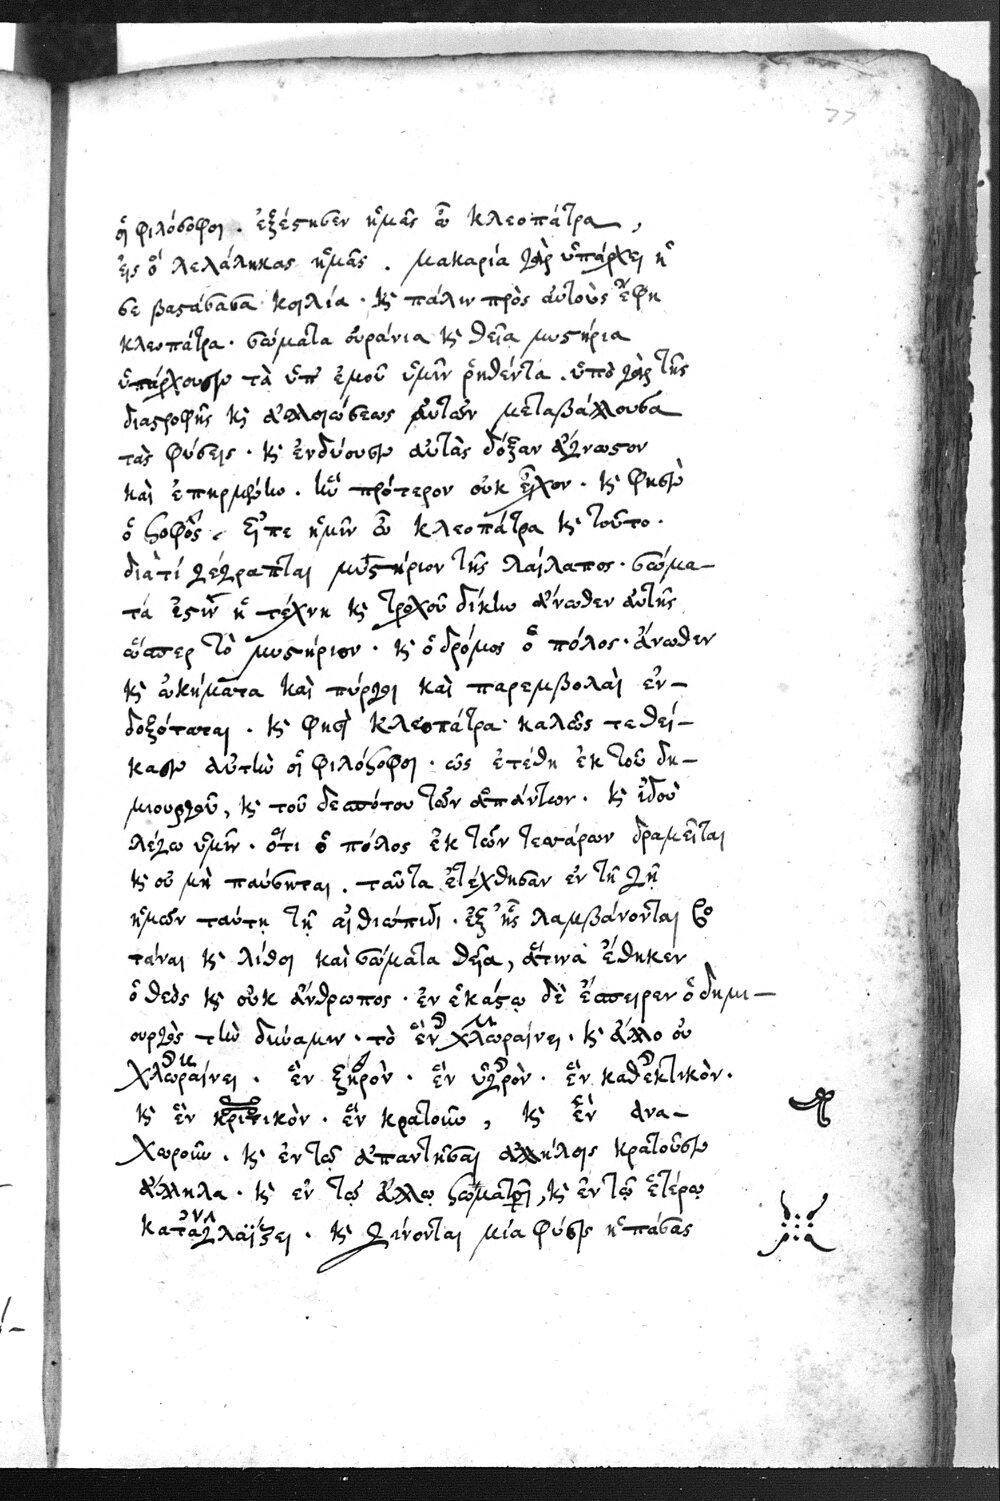 77
οἱ φιλόσοφοι. ἐξέστησεν ἡμᾶς ὦ κλεοπάτρα,
εἰς ὃ λελάληκας ἡμᾶς. μακαρία γὰρ ὑπάρχει ἥ
σε βαστάσασα κοιλία. κ̀ πάλιν πρὸς αὐτοὺς ἔφη
κλεοπάτρα. σώματα οὐράνια κ̀ θεῖα μυστήρια
ὑπάρχουσιν τὰ ὑπ' ἐμοῦ ὑμῖν ῥηθέντα. ὑπὸ γὰρ τῆς
διαστροφῆς κ̀ ἀλλοιώσεως αὐτῶν μεταβάλλουσα
τὰς φύσεις. κ̀ ἐνδύουσιν αὐτὰς δόξαν ἄγνωστον
καὶ ἐπηρμένην. ἣν πρότερον οὐκ εἶχον. κ̀ φησὶν
ὁ σοφὸς. εἶπε ἡμῖν ὦ κλεοπάτρα κ̀ τοῦτο.
διὰ τί γέγραπται μυστήριον τῆς λαίλαπος. σώμα-
τά ἐστιν ἡ τέχνη κ̀ τροχοῦ δίκην ἄνωθεν αὐτῆς
ὥσπερ τὸ μυστήριον. κ̀ ὁ δρόμος ὁ πόλος. ἄνωθεν
κ̀ οἰκήματα καὶ πύργοι καὶ παρεμβολαὶ ἐν-
δοξόταται. κ̀ φησὶ κλεοπάτρα καλῶς τεθεί-
κασιν αὐτὴν οἱ φιλόσοφοι. ὡς ἐτέθη ἐκ τοῦ δη-
μιουργοῦ, κ̀ τοῦ δεσπότου τῶν ἁπάντων. κ̀ ἰδοὺ
λέγω ὑμῖν. ὅτι ὁ πόλος ἐκ τῶν τεσσάρων δραμεῖται
κ̀ οὐ μὴ παύσηται. ταῦτα ἐτέχθησαν ἐν τῇ γῇ
ἡμῶν ταύτῃ τῇ αἰθιωπίδι. ἐξ ἧς λαμβάνονται βο
τάναι κ̀ λίθοι καὶ σώματα θεῖα, ἅτινα ἔθηκεν
ὁ θεὸς κ̀ οὐκ ἄνθρωπος. ἐν ἑκάστῳ δὲ ἔσπειρεν ὁ δημι-
ουργὸς τὴν δύναμιν. τὸ ἓν χλωραίνει. κ̀ ἄλλο οὐ
χλωραίνει. ἓν ξηρὸν. ἓν ὑγρὸν. ἓν καθεκτικὸν.
κ̀ ἓν κριτικὸν. ἓν κρατοῦν, κ̀ ἓν ἀνα-
χωροῦν. κ̀ ἐν τῷ ἀπαντῆσαι ἀλλήλοις κρατοῦσιν
ἄλληλα. κ̀ ἐν τῷ ἄλλῳ σώματι, κ̀ ἐν τῷ ἑτέρῳ
καταγλαΐζει. κ̀ γίνονται μία φύσις ἡ πάσας